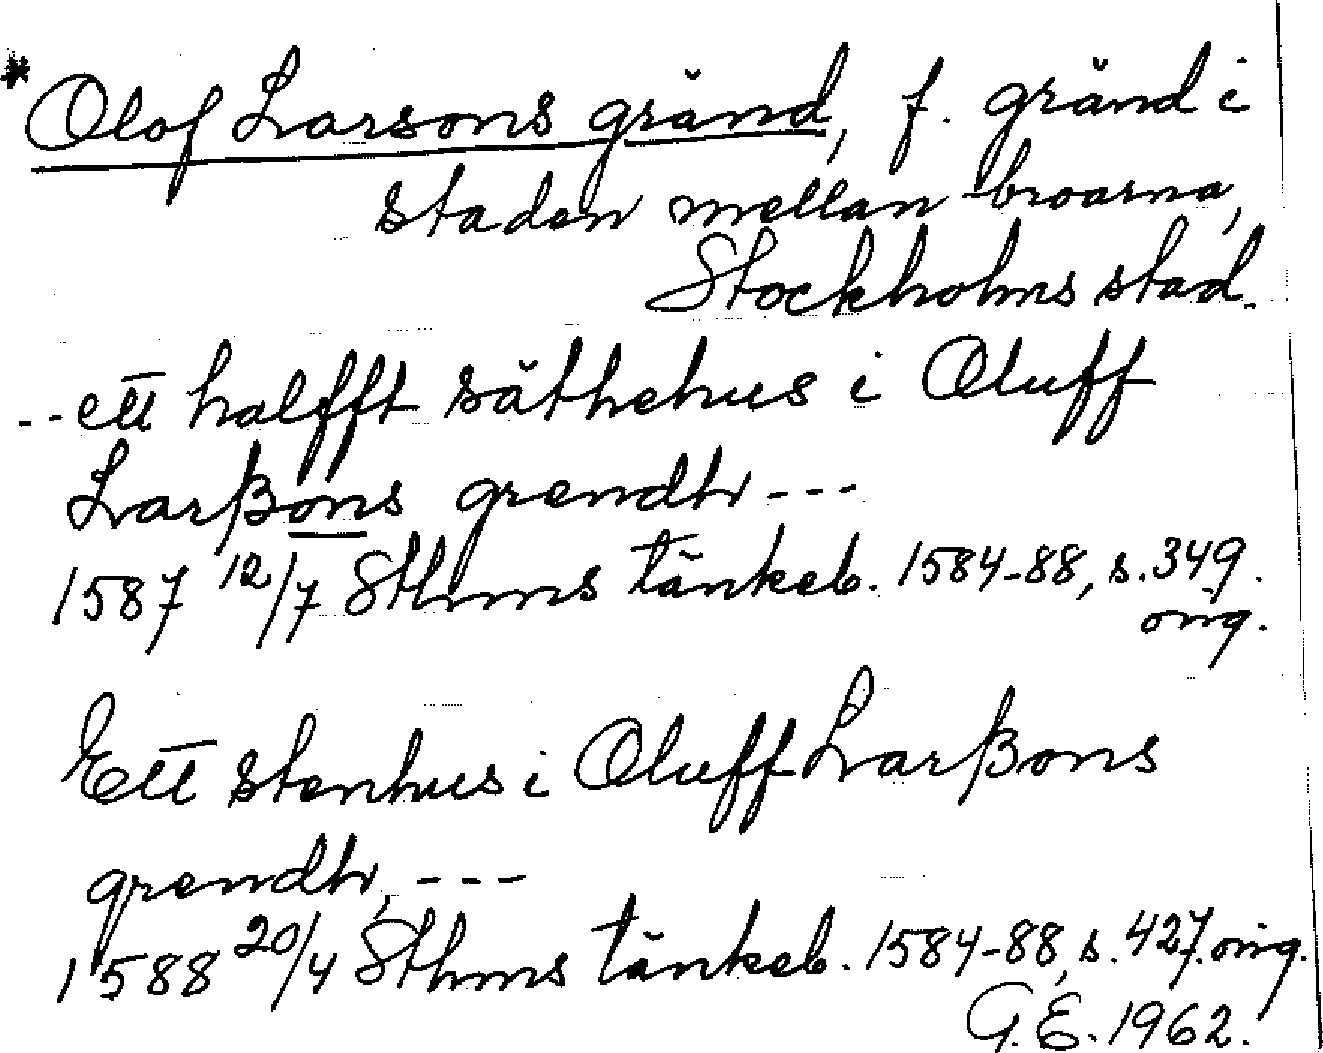 * Olof Larsons gränd, f. gränd i
staden mellan broarna,
Stockholms stad.
-- ett halfft säthehus i Oluff
Larßons grendh ---
1587 12/7 Sthms tänkeb. 1584-88, s. 349.
orig.
Ett stenhus i Oluff Larßons
grendh, ---
1588 20/4 Sthms tänkeb. 1584-88, s. 427. orig.
G. E. 1962.